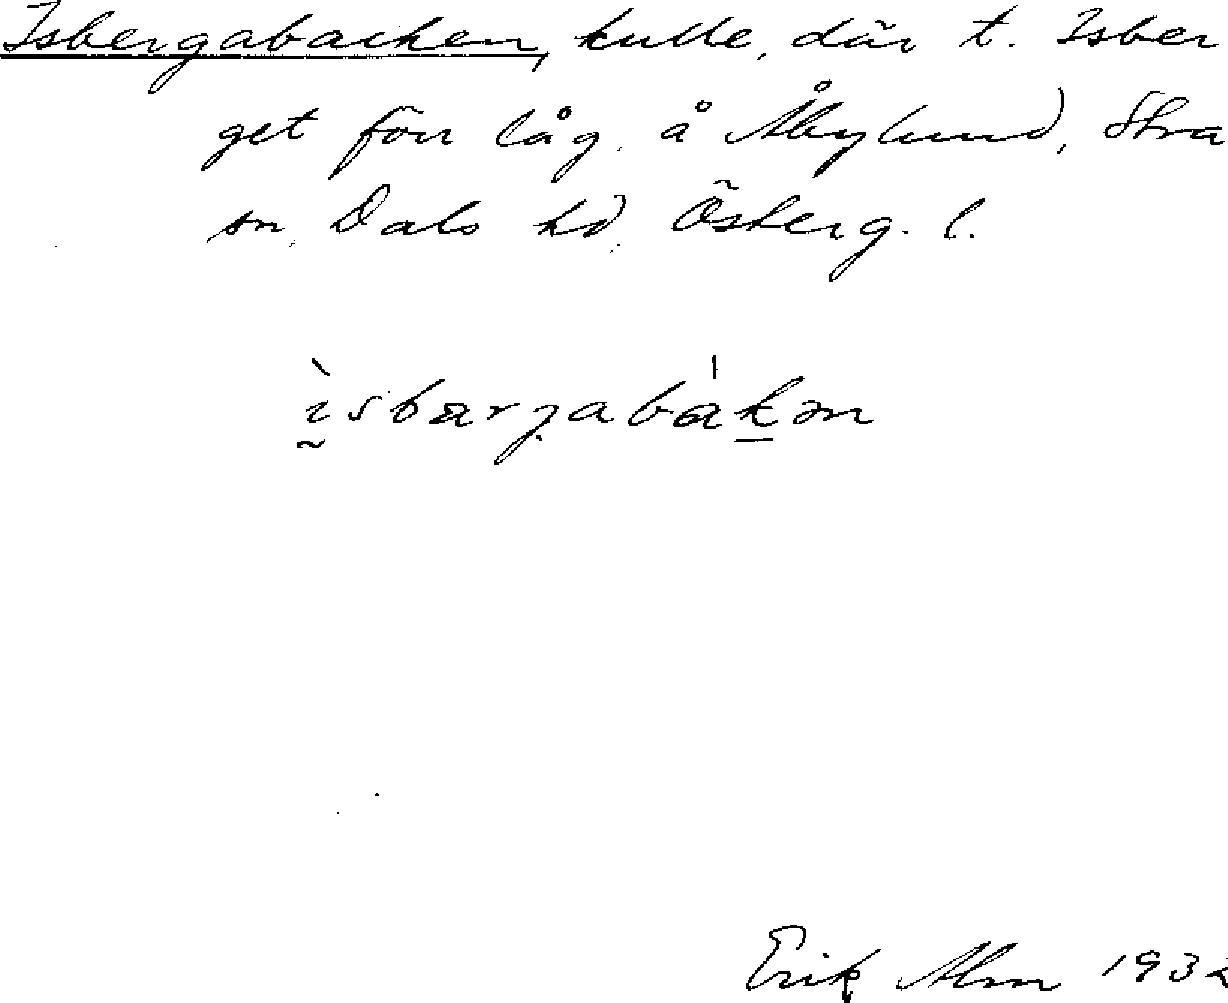 Isbergabacken, kulle, där t. Isber
get förr låg, å Åbylund, Stra
sn, Dals hd, Österg. l.
ìsbargabákən
Erik Alm 1932